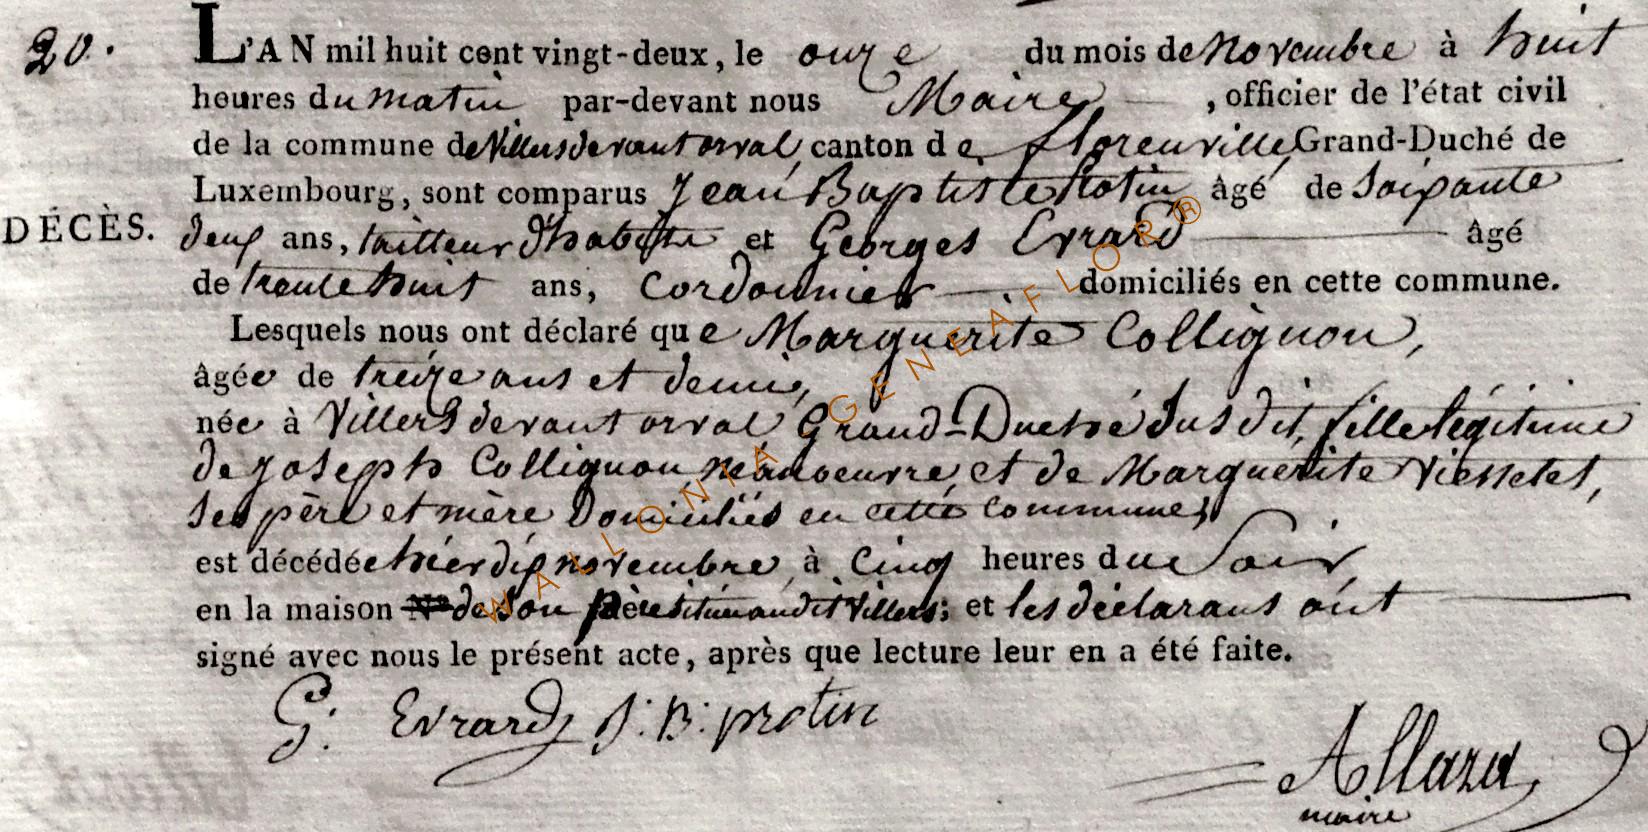 20. L'AN mil huit cent vingt-deux, le onze du mois de Novembre à huit
heures du matin par-devant nous Maire, officier de l'état civil
de la commune de Villers devant orval, canton de florenville Grand-Duché de
Luxembourg, sont comparus Jean Baptiste Protin âgé de Soixante
DÉCÈS. deux ans, tailleur d'habits et Georges Evrard âgé
de trente huit ans, Cordonnier domiciliés en cette commune.
Lesquels nous ont déclaré que Marguerite Collignon,
âgée de treize ans et demie,
née à Villers devant orval Grand-Duché Susdit, fille légitime
de Joseph Collignon, manoeuvre, et de Marguerite
Ses père et mère Domiciliés en cette commune,
est décédée hier dix novembre, à Cinq heures du Soir,
en la maison N° de Son père situé audit Villers; et les déclarans ont
signé avec nous le présent acte, après que lecture leur en a été faite.
G: Evrard J: B: protin
Allard
maire
WALLONIA GENEAFLOR®